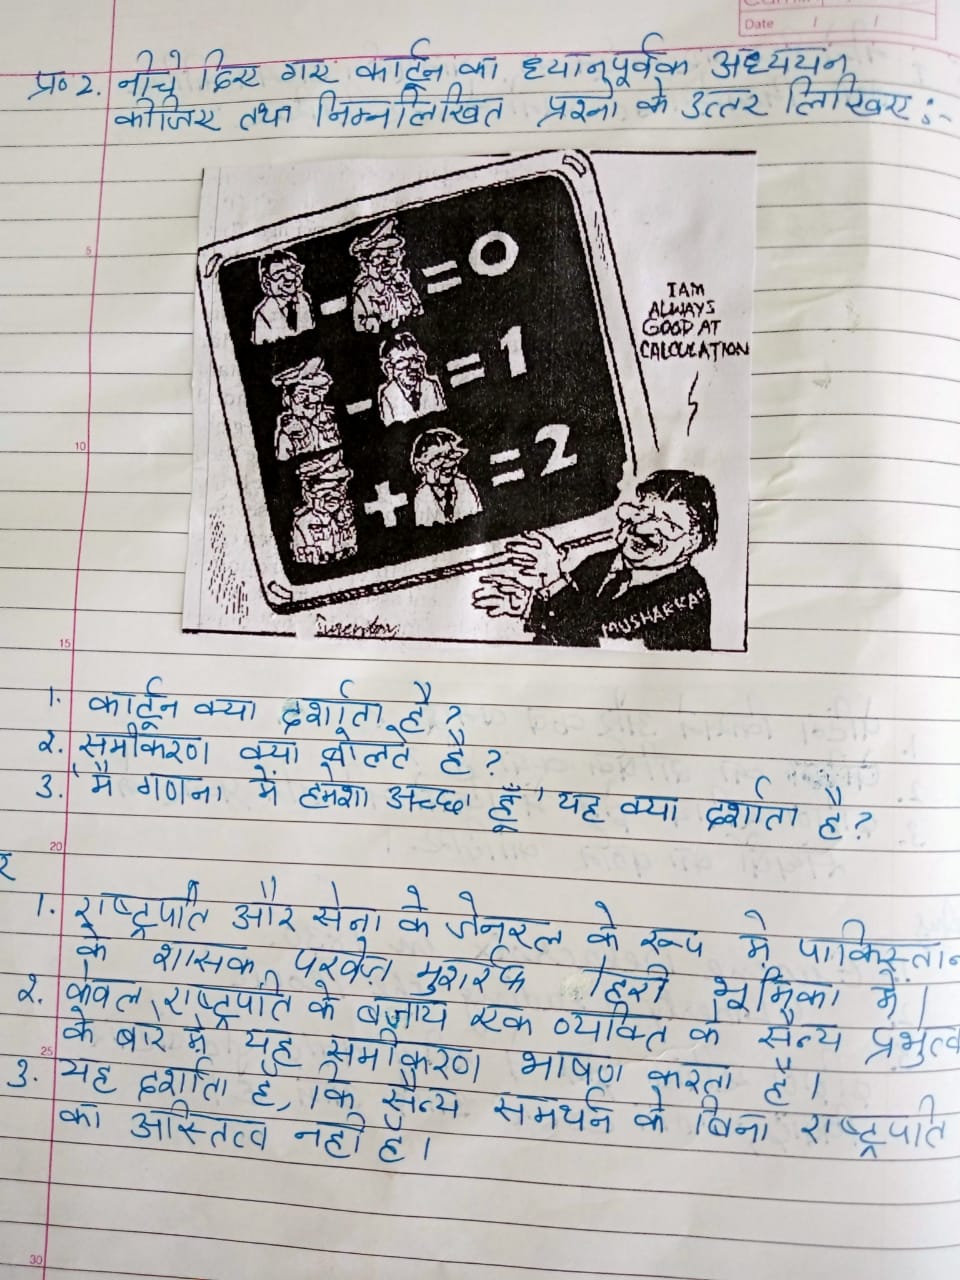 Date / /
प्र० 2. नीचे दिए गए कार्टून का ध्यानपूर्वक अध्ययन
कीजिए तथा निम्नलिखित प्रश्नो के उत्तर लिखिए :-
5
= 0
I AM
ALWAYS
GOOD AT
CALCULATION
- = 1
10
+ = 2
MUSHARRAF
15
1. कार्टून क्या दर्शाता है?
2. समीकरण क्या बोलते है?
3. 'मै गणना में हमेशा अच्छा हूँ' यह क्या दर्शाता है?
20
1. राष्ट्रपति और सेना के जेनरल के रूप मे पाकिस्तान
के शासक परवेज़ मुशर्रफ दोहरी भूमिका में।
2. केवल राष्ट्रपति के बजाय एक व्यक्ति के सैन्य प्रभुत्व
के बारे मे यह समीकरण भाषण करता है।
25
3. यह दर्शाता है, कि सैन्य समर्थन के बिना राष्ट्रपति
का अस्तित्व नही है।
30